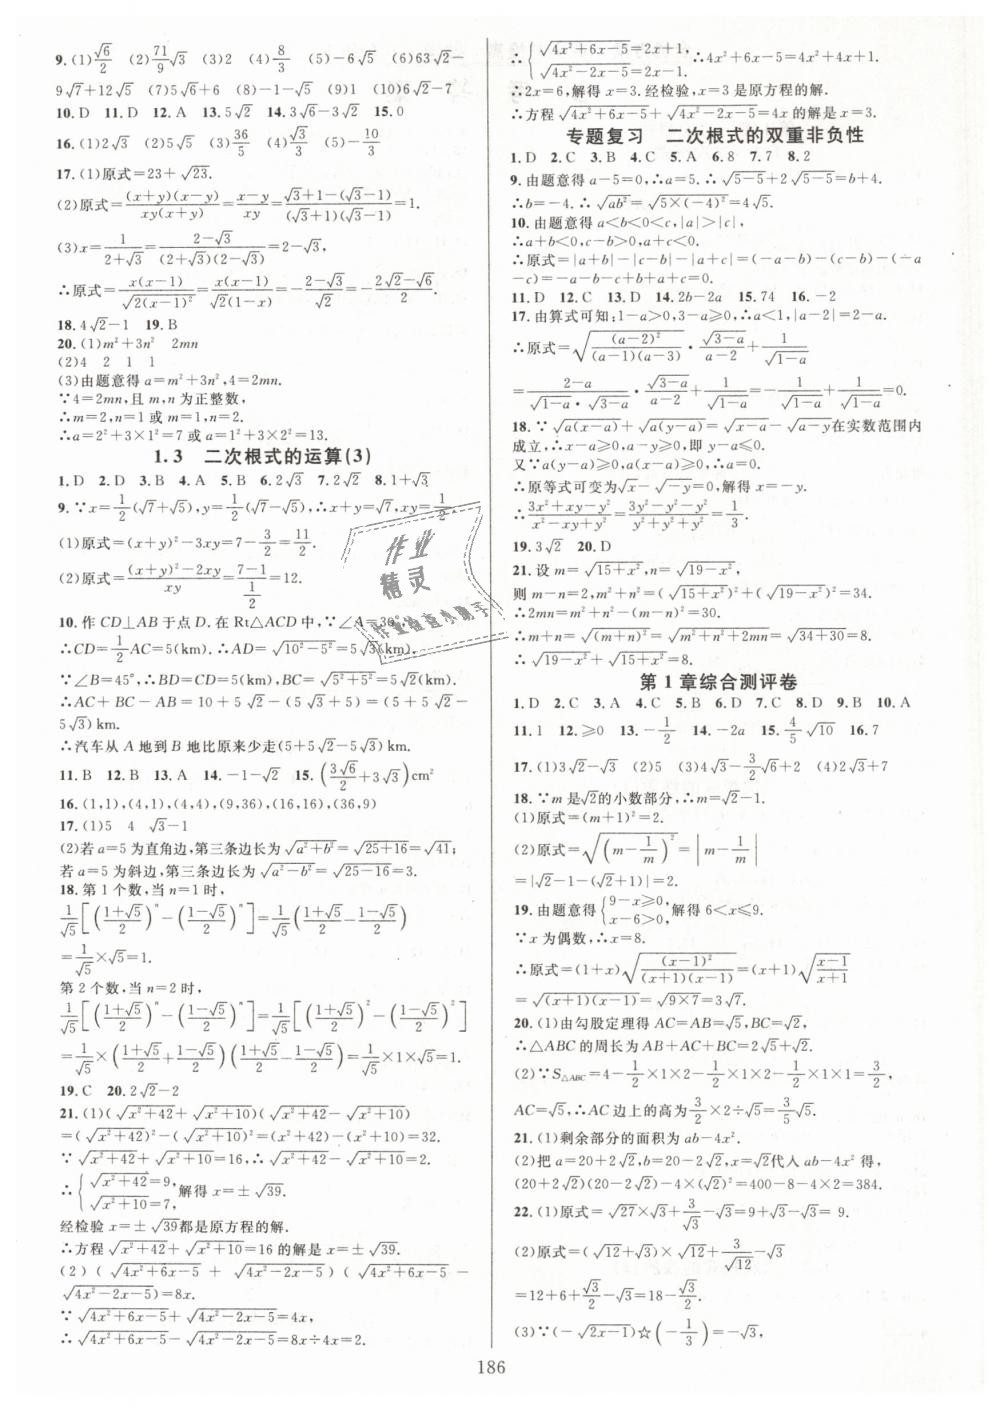 9.(1)√6/2 (2)71/9√3 (3)√2 (4)8/3 (5)-6√5 (6)63√2-
9√7+12√5 (7)5√6+6 (8)-1-√5 (9)1 (10)6√2-7
10.D 11.D 12.A 13.5√2 14.3√6-3√3 15.0
16.(1)2√3 (2)5√5 (3)36/5 (4)√3/3 (5)-10/3
17.(1)原式=23+√23.
(2)原式=(x+y)(x-y)/xy(x+y)=x-y/xy=√3+1-(√3-1)/(√3+1)(√3-1)=1.
(3)x=1/2+√3=2-√3/(2+√3)(2-√3)=2-√3,
∴原式=x(x-1)/√2(x-1)²=x(x-1)/√2(1-x)=-2-√3/√2=-2√2-√6/2.
18.4√2-1 19.B
20.(1)m²+3n² 2mn
(2)4 2 1 1
(3)由题意得a=m²+3n²,4=2mn.
∵4=2mn,且m,n为正整数,
∴m=2,n=1或m=1,n=2.
∴a=2²+3×1²=7或a=1²+3×2²=13.
1.3 二次根式的运算(3)
1.D 2.D 3.B 4.A 5.B 6.2√3 7.2√2 8.1+√3
9.∵x=1/2(√7+√5),y=1/2(√7-√5),∴x+y=√7,xy=1/2.
(1)原式=(x+y)²-3xy=7-3/2=11/2.
(2)原式=(x+y)²-2xy/xy=7-1/(1/2)=12.
10.作CD⊥AB于点D.在Rt△ACD中,∵∠A=30°,
∴CD=1/2AC=5(km).∴AD=√10²-5²=5√3(km).
∵∠B=45°,∴BD=CD=5(km),BC=√5²+5²=5√2(km).
∴AC+BC-AB=10+5√2-(5√3+5)=(5+5√2-
5√3)km.
∴汽车从A地到B地比原来少走(5+5√2-5√3)km.
11.B 12.B 13.A 14.-1-√2 15.(3√6/2+3√3)cm²
16.(1,1),(4,1),(4,4),(9,36),(16,16),(36,9)
17.(1)5 4 √3-1
(2)若a=5为直角边,第三条边长为√a²+b²=√25+16=√41;
若a=5为斜边,第三条边长为√a²-b²=√25-16=3.
18.第1个数,当n=1时,
1/√5[(1+√5/2)ⁿ-(1-√5/2)ⁿ]=1/√5(1+√5/2-1-√5/2)
=1/√5×√5=1.
第2个数,当n=2时,
1/√5[(1+√5/2)ⁿ-(1-√5/2)ⁿ]=1/√5[(1+√5/2)²-(1-√5/2)²]
=1/√5×(1+√5/2+1-√5/2)(1+√5/2-1-√5/2)=1/√5×1×√5=1.
19.C 20.2√2-2
21.(1)(√x²+42+√x²+10)(√x²+42-√x²+10)
=(√x²+42)²-(√x²+10)²=(x²+42)-(x²+10)=32.
∵√x²+42+√x²+10=16,∴√x²+42-√x²+10=2.
∴{√x²+42=9,√x²+10=7,解得x=±√39.
经检验x=±√39都是原方程的解.
∴方程√x²+42+√x²+10=16的解是x=±√39.
(2)(√4x²+6x-5+√4x²-2x-5)(√4x²+6x-5-
√4x²-2x-5)=8x.
∵√4x²+6x-5+√4x²-2x-5=4x,
∴√4x²+6x-5-√4x²-2x-5=8x÷4x=2.
∴{√4x²+6x-5=2x+1,√4x²-2x-5=2x-1.∴4x²+6x-5=4x²+4x+1.
∴2x=6,解得x=3.经检验,x=3是原方程的解.
∴方程√4x²+6x-5+√4x²-2x-5=4x的解是x=3.
专题复习 二次根式的双重非负性
1.D 2.C 3.B 4.C 5.A 6.8 7.7 8.2
9.由题意得a-5=0,∴a=5.∴√5-5+2√5-5=b+4.
∴b=-4.∴√ab²=√5×(-4)²=4√5.
10.由题意得a<b<0<c,|a|>|c|,
∴a+b<0,c-b>0,a+c<0.
∴原式=|a+b|-|c-b|-|a+c|=(-a-b)-(c-b)-(-a
-c)=-a-b-c+b+a+c=0.
11.D 12.C 13.D 14.2b-2a 15.74 16.-2
17.由算式可知:1-a>0,3-a≥0,∴a<1,|a-2|=2-a.
∴原式=√(a-2)²/(a-1)(a-3)·√3-a/a-2+1/√1-a
=2-a/√1-a·√3-a·√3-a/a-2+1/√1-a=-1/√1-a+1/√1-a=0.
18.∵√a(x-a)+√a(y-a)=√x-a-√a-y在实数范围内
成立,∴x-a≥0,a-y≥0,即y-a≤0.
又∵a(y-a)≥0,a(x-a)≥0,∴a=0.
∴原等式可变为√x-√-y=0,解得x=-y.
∴3x²+xy-y²/x²-xy+y²=3y²-y²-y²/y²+y²+y²=1/3.
19.3√2 20.D
21.设m=√15+x²,n=√19-x²,
则m-n=2,m²+n²=(√15+x²)²+(√19-x²)²=34.
∴2mn=m²+n²-(m-n)²=30.
∴m+n=√(m+n)²=√m²+n²+2mn=√34+30=8.
∴√19-x²+√15+x²=8.
第1章综合测评卷
1.D 2.C 3.A 4.C 5.B 6.D 7.C 8.D 9.B 10.A
11.1 12.≥0 13.-1/2 14.-2a 15.4/5√10 16.7
17.(1)3√2-√3 (2)5 (3)4√3-3/2√6+2 (4)2√3+7
18.∵m是√2的小数部分,∴m=√2-1.
(1)原式=(m+1)²=2.
(2)原式=√(m-1/m)²=|m-1/m|
=|√2-1-(√2+1)|=2.
19.由题意得{9-x≥0,x-6>0,解得6<x≤9.
∵x为偶数,∴x=8.
∴原式=(1+x)√(x-1)²/(x+1)(x-1)=(x+1)√x-1/x+1
=√(x+1)(x-1)=√9×7=3√7.
20.(1)由勾股定理得AC=AB=√5,BC=√2,
∴△ABC的周长为AB+AC+BC=2√5+√2.
(2)∵S△ABC=4-1/2×1×2-1/2×1×2-1/2×1×1=3/2,
AC=√5,∴AC边上的高为3/2×2÷√5=3/5√5.
21.(1)剩余部分的面积为ab-4x².
(2)把a=20+2√2,b=20-2√2,x=√2代入ab-4x²得,
(20+2√2)(20-2√2)-4×(√2)²=400-8-4×2=384.
22.(1)原式=√27×√3+3/√3-√3=9+√3-√3=9.
(2)原式=(√12+√3)×√12+3/√12-√3
=12+6+√3/2-√3=18-√3/2.
(3)∵(-√2x-1)☆(-1/3)=-√3,
186
作业
精灵
作业检查小助手